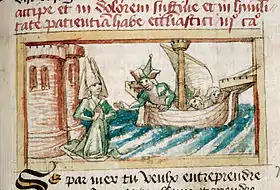 accipe et in dolorem sustine et in humili
tate patientiam habe ecclesiastici ijº caº
Se par mer tu veulx entreprendre